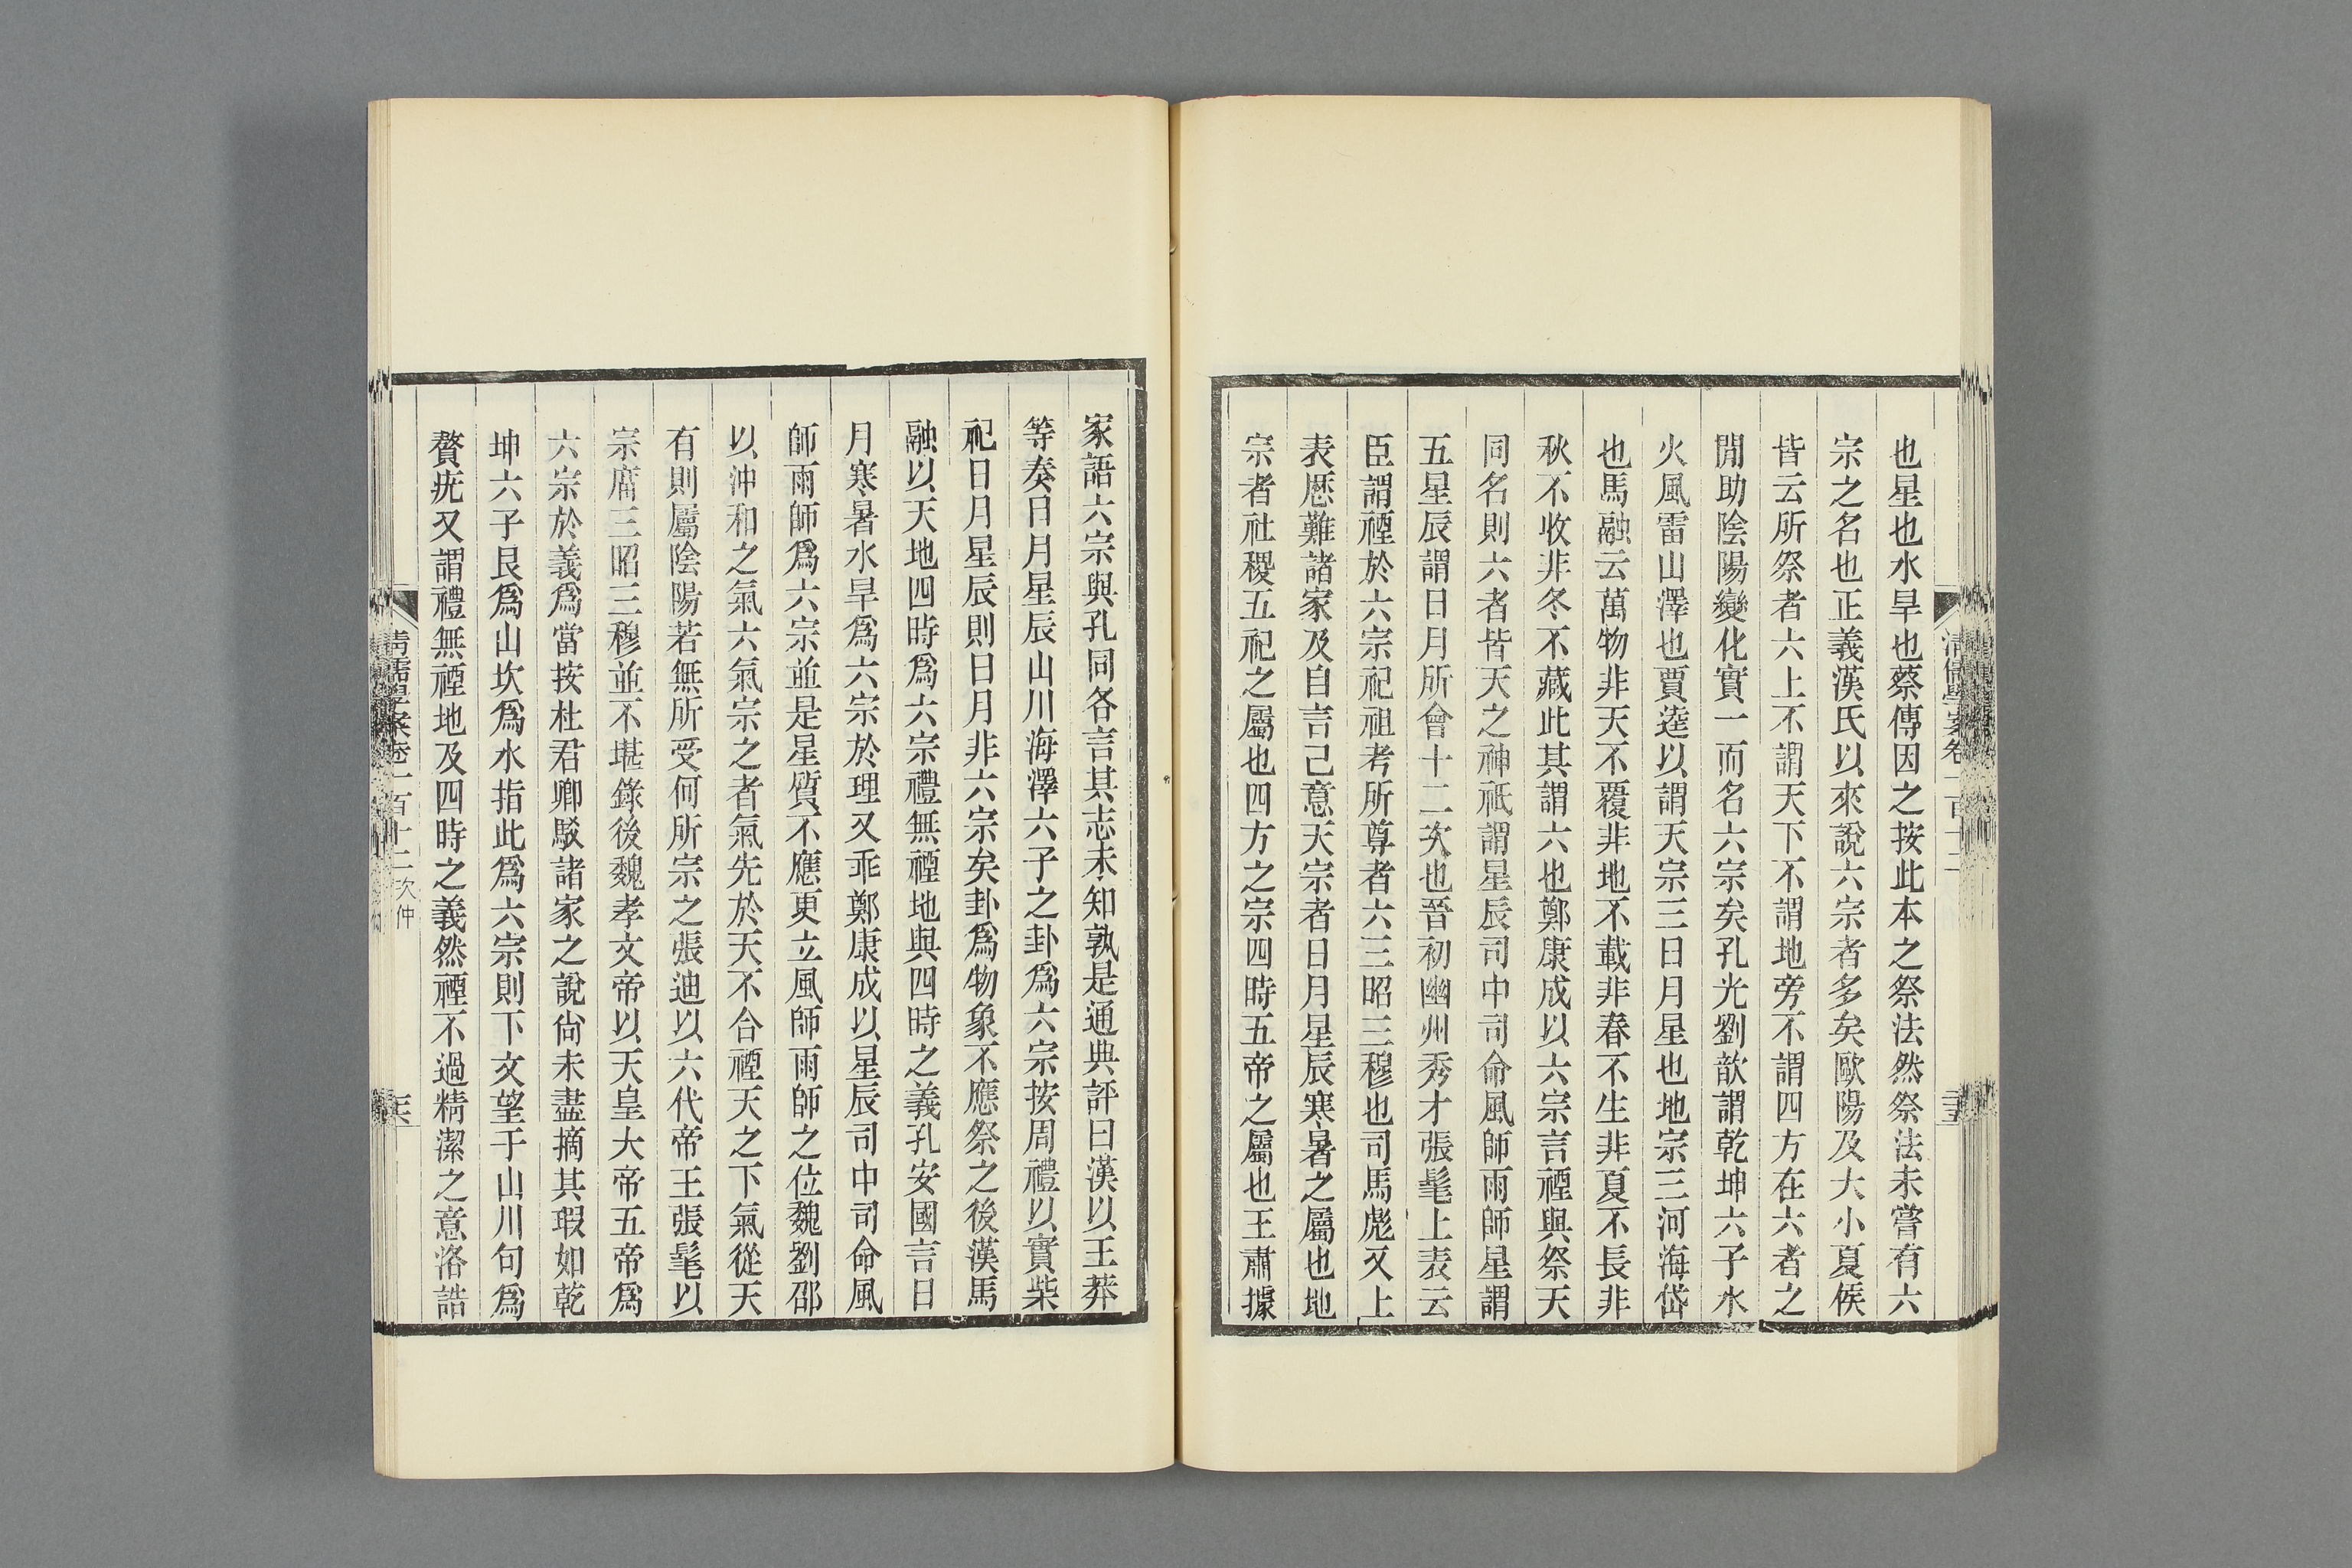 也星也水旱也蔡傳因之按此本之祭法然祭法未嘗有六
宗之名也正義漢氏以來說六宗者多矣歐陽及大小夏侯
皆云所祭者六上不謂天下不謂地旁不謂四方在六者之
閒助陰陽變化實一而名六宗矣孔光劉歆謂乾坤六子水
火風雷山澤也賈逵以謂天宗三日月星也地宗三河海岱
也馬融云萬物非天不覆非地不載非春不生非夏不長非
秋不收非冬不藏此其謂六也鄭康成以六宗言禋與祭天
同名則六者皆天之神祇謂星辰司中司命風師雨師星謂
五星辰謂日月所會十二次也晉初幽州秀才張髦上表云
臣謂禋於六宗祀祖考所尊者六三昭三穆也司馬彪又上
表歷難諸家及自言己意天宗者日月星辰寒暑之屬也地
宗者社稷五祀之屬也四方之宗四時五帝之屬也王肅據
家語六宗與孔同各言其志未知孰是通典評曰漢以王莽
等奏日月星辰山川海澤六子之卦爲六宗按周禮以實柴
祀日月星辰則日月非六宗矣卦爲物象不應祭之後漢馬
融以天地四時爲六宗禮無禋地與四時之義孔安國言日
月寒暑水旱爲六宗於理又乖鄭康成以星辰司中司命風
師雨師爲六宗並是星質不應更立風師雨師之位魏劉邵
以沖和之氣六氣宗之者氣先於天不合禋天之下氣從天
有則屬陰陽若無所受何所宗之張迪以六代帝王張髦以
宗廟三昭三穆並不堪錄後魏孝文帝以天皇大帝五帝爲
六宗於義爲當按杜君卿駁諸家之說尙未盡摘其瑕如乾
坤六子艮爲山坎爲水指此爲六宗則下文望于山川句爲
贅疣又謂禮無禋地及四時之義然禋不過精潔之意洛誥
清儒學案卷一百十二 次仲